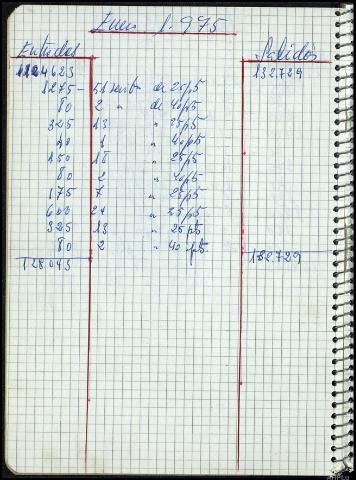 Enero 1.975
Entradas Salidas
124623 132729
1275 - 51 recibos de 25 pts
80 2 " de 40 pts
325 13 " 25 pts
40 1 " 40 pts
450 18 " 25 pts
80 2 " 40 pts
175 7 " 25 pts
600 24 " 25 pts
325 13 " 25 pts
80 2 " 40 pts.
128.053 132.729